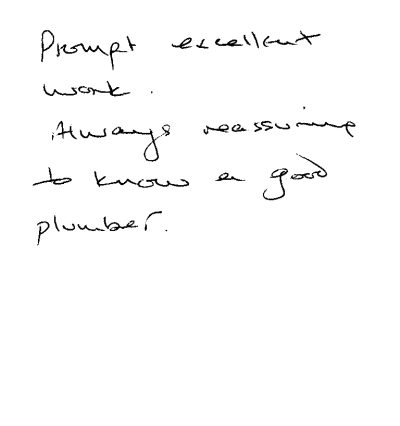 Prompt excellent
work.
Always reassuring
to know a good
plumber.